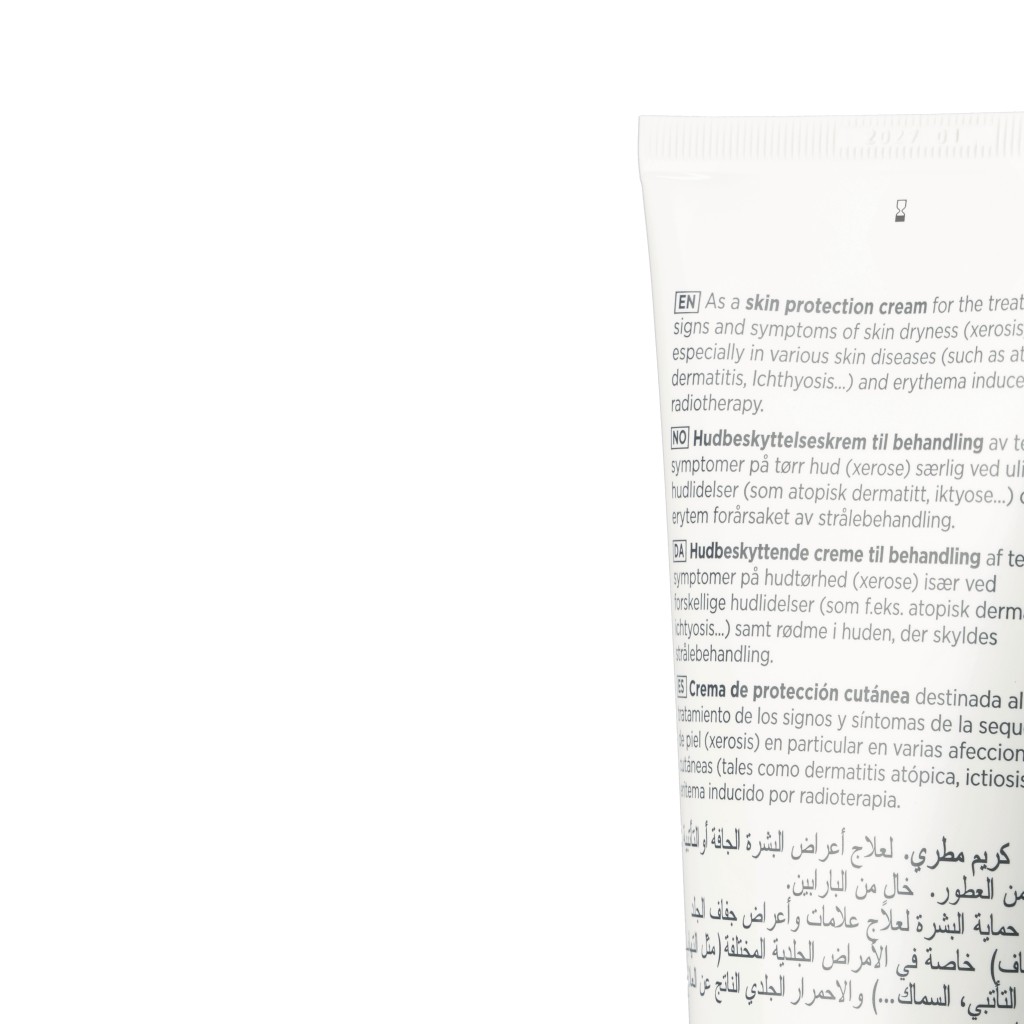 EN As a skin protection cream for the treat
signs and symptoms of skin dryness (xerosis
especially in various skin diseases (such as at
dermatitis, Ichthyosis...) and erythema induce
radiotherapy.
NO Hudbeskyttelseskrem til behandling av te
symptomer på tørr hud (xerose) særlig ved uli
hudlidelser (som atopisk dermatitt, iktyose...)
erytem forårsaket av strålebehandling.
DA Hudbeskyttende creme til behandling af te
symptomer på hudtørhed (xerose) især ved
forskellige hudlidelser (som f.eks. atopisk derma
ichtyosis...) samt rødme i huden, der skyldes
strålebehandling.
ES Crema de protección cutánea destinada al
tratamiento de los signos y síntomas de la sequ
de piel (xerosis) en particular en varias afeccion
cutáneas (tales como dermatitis atópica, ictiosis
eritema inducido por radioterapia.
كريم مطري. لعلاج أعراض البشرة الجافة أو
من العطور. خالٍ من البارابين.
حماية البشرة لعلاج علامات وأعراض جفاف الجلد
اف) خاصة في الأمراض الجلدية المختلفة (مثل
التأتبي، السماك...) والاحمرار الجلدي الناتج عن